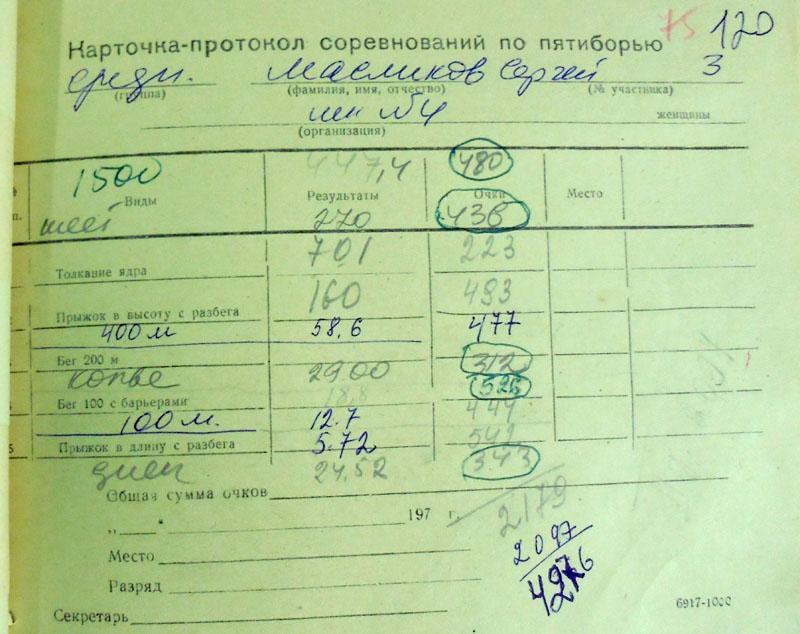 75 120
Карточка-протокол соревнований по пятиборью
средн. Масликов Сергей 3
(группа) (фамилия, имя, отчество) (№ участника)
шк №4 женщины
(организация)
1500 447,4 480
Виды Результаты Очки Место
шест 270 436
701 223
Толкание ядра
160 493
Прыжок в высоту с разбега
400 м 58,6 477
Бег 200 м 312
копье 2900 526
Бег 100 с барьерами 18,8
100 м. 12.7 444
Прыжок в длину с разбега 5.72 542
диск 24.52 343
Общая сумма очков
„ “ 197 г. 2179
2097
Место
Разряд
Секретарь
6917-1000